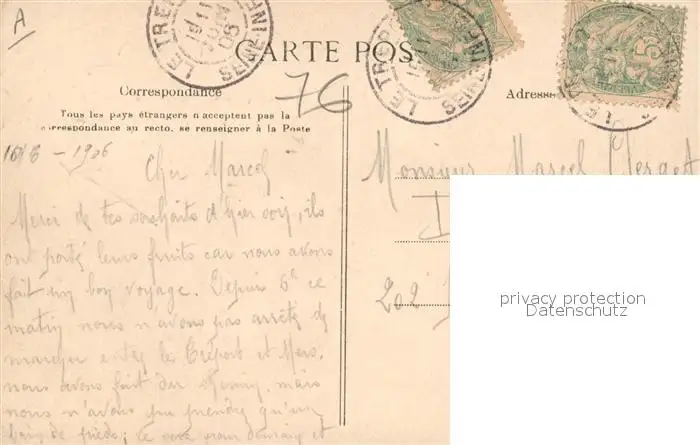 A
LE TREPORT
SEINE-INFRE
CARTE POS
LE TREPORT
SEINE INFRE
76
Correspondance
Adresse
Tous les pays étrangers n'acceptent pas la
correspondance au recto, se renseigner à la Poste
16/6 - 1906
Cher Marcel
Monsieur Marcel
Merci de tes souhaits d'hier soir, ils
ont porté leurs fruits car nous avons
fait un bon voyage. Depuis 6h ce
202
matin nous n'avons pas arrêté de
marcher entre le Tréport et Mers.
nous avons fait du chemin, mais
nous n'avons pu prendre qu'un
bain de pieds; ce sera pour demain et
privacy protection
Datenschutz